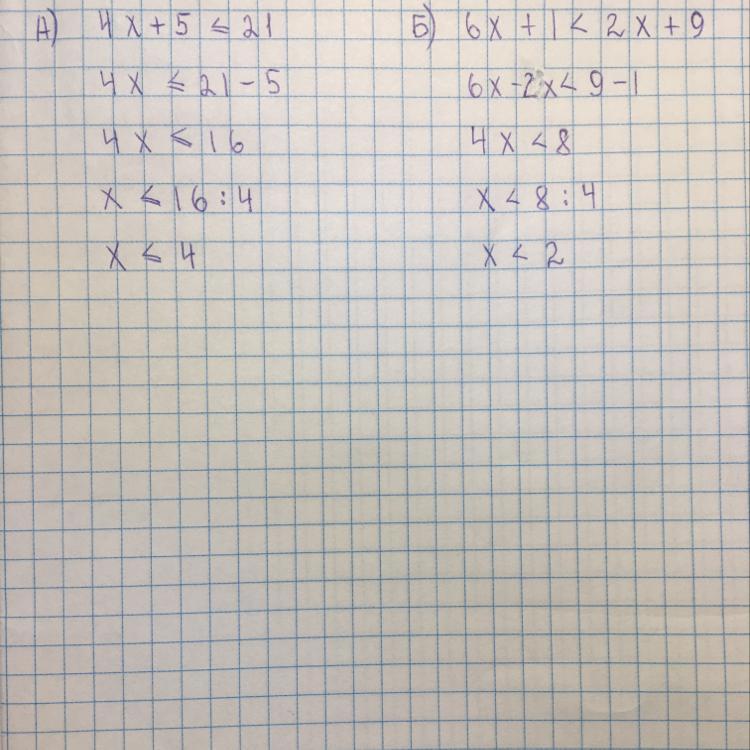 А) 4x + 5 ≤ 21
4x ≤ 21 - 5
4x ≤ 16
x ≤ 16 : 4
x ≤ 4
Б) 6x + 1 < 2x + 9
6x - 2x < 9 - 1
4x < 8
x < 8 : 4
x < 2